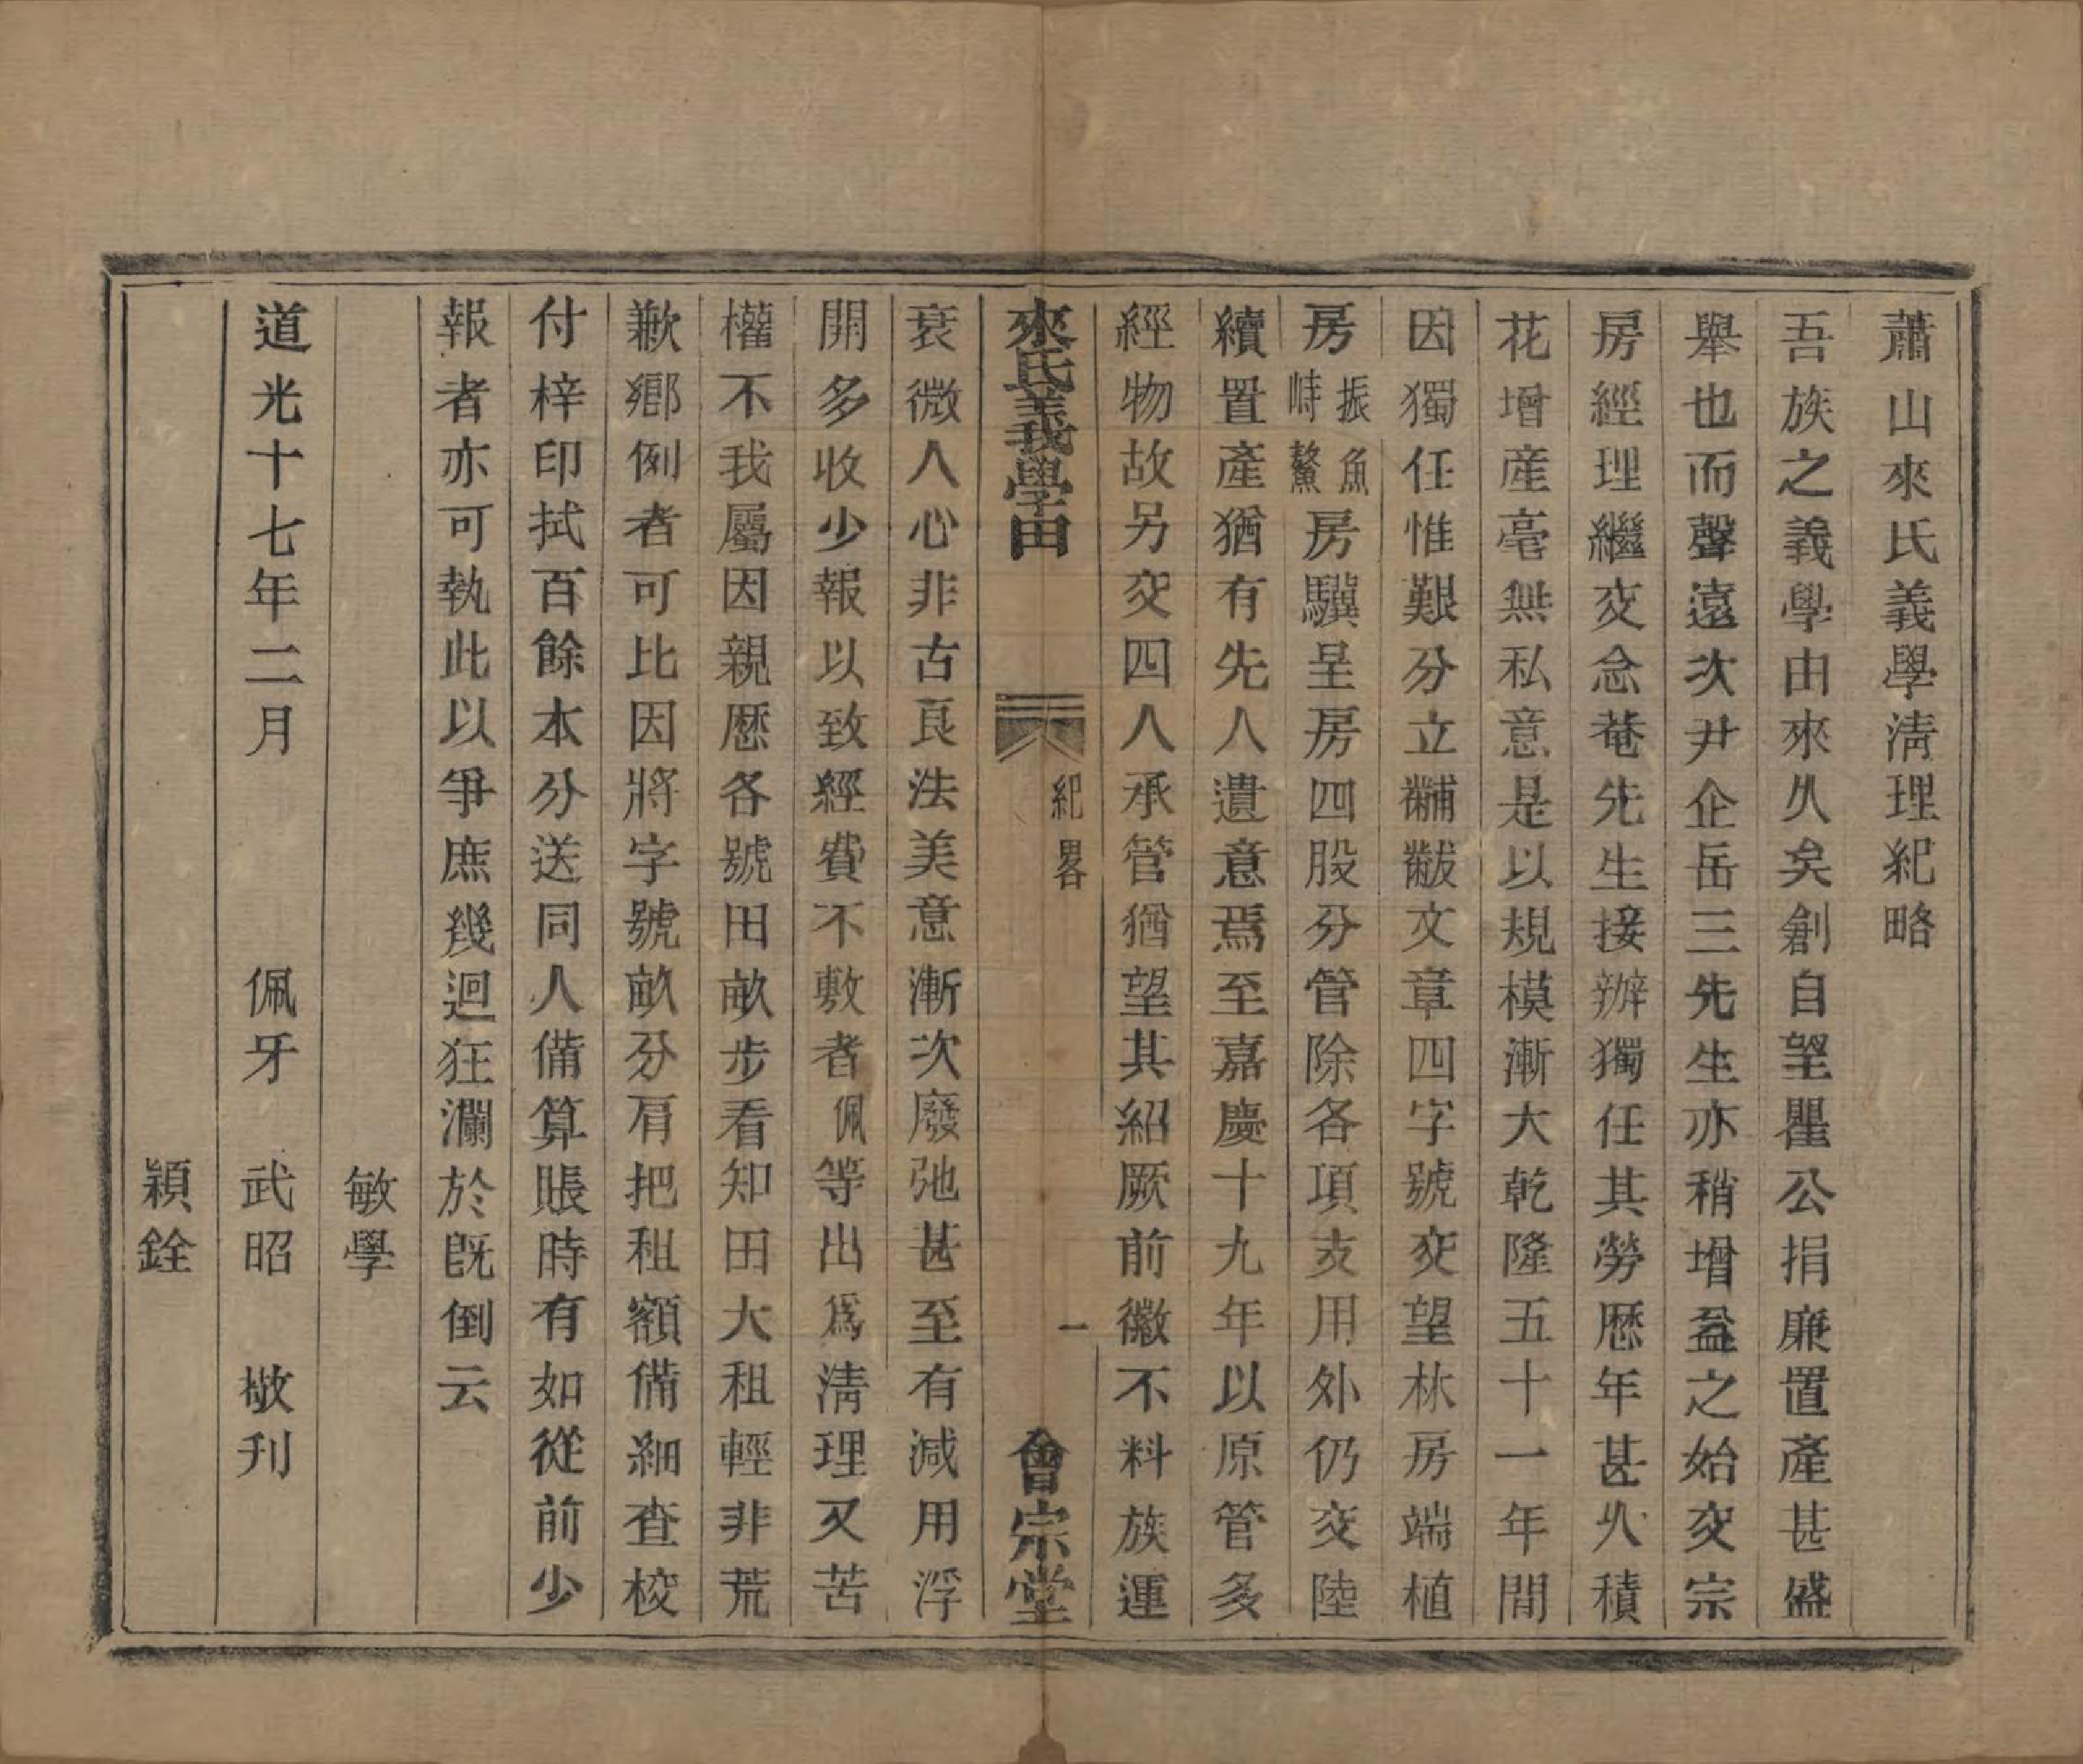 蕭山來氏義學淸理紀略
吾族之義學由來久矣創自望瞿公捐廉置產甚盛
舉也而聲遠次尹企岳三先生亦稍增益之始交宗
房經理繼交念菴先生接辦獨任其勞歷年甚久積
花增產毫無私意是以規模漸大乾隆五十一年間
因獨任惟艱分立黼黻文章四字號交望林房端植
房振魚峙鰲房驥呈房四股分管除各項支用外仍交陸
續置產猶有先人遺意焉至嘉慶十九年以原管多
經物故另交四人承管猶望其紹厥前徽不料族運
來氏義學田 紀畧 一 會宗堂
衰微人心非古良法美意漸次廢弛甚至有減用浮
開多收少報以致經費不敷者佩等出爲淸理又苦
權不我屬因親歷各號田畝步看知田大租輕非荒
歉鄉例者可比因將字號畝分肩把租額備細查校
付梓印拭百餘本分送同人備算賬時有如從前少
報者亦可執此以爭庶幾迴狂瀾於旣倒云
敏學
道光十七年二月 佩牙 武昭 敬刋
穎銓